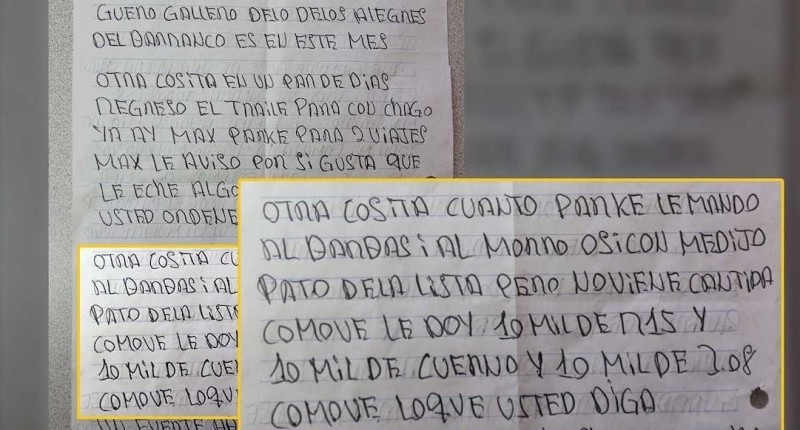 GUERO GALLERO DELO DELOS ALEGRES
DEL BARRANCO ES EN ESTE MES
OTRA COSITA EN UN PAR DE DIAS
REGRESO EL TRAILE PARA CON CHAGO
YA AY MAX PARKE PARA 2 VIAJES
MAX LE AVISO POR SI GUSTA QUE
LE ECHE ALGO
USTED ORDENE
OTRA COSITA CU
AL BARBAS i AL
PATO DELA LISTA
COMOVE LE DOY
10 MIL DE CUER
COMOVE LOQU
OTRA COSITA CUANTO PARKE LE MANDO
AL BARBAS i AL MORRO OSICON MEDIJO
PATO DELA LISTA PERO NOVIENE CANTIDA
COMOVE LE DOY 10 MIL DE R15 Y
10 MIL DE CUERNO Y 10 MIL DE 3.08
COMOVE LOQUE USTED DIGA